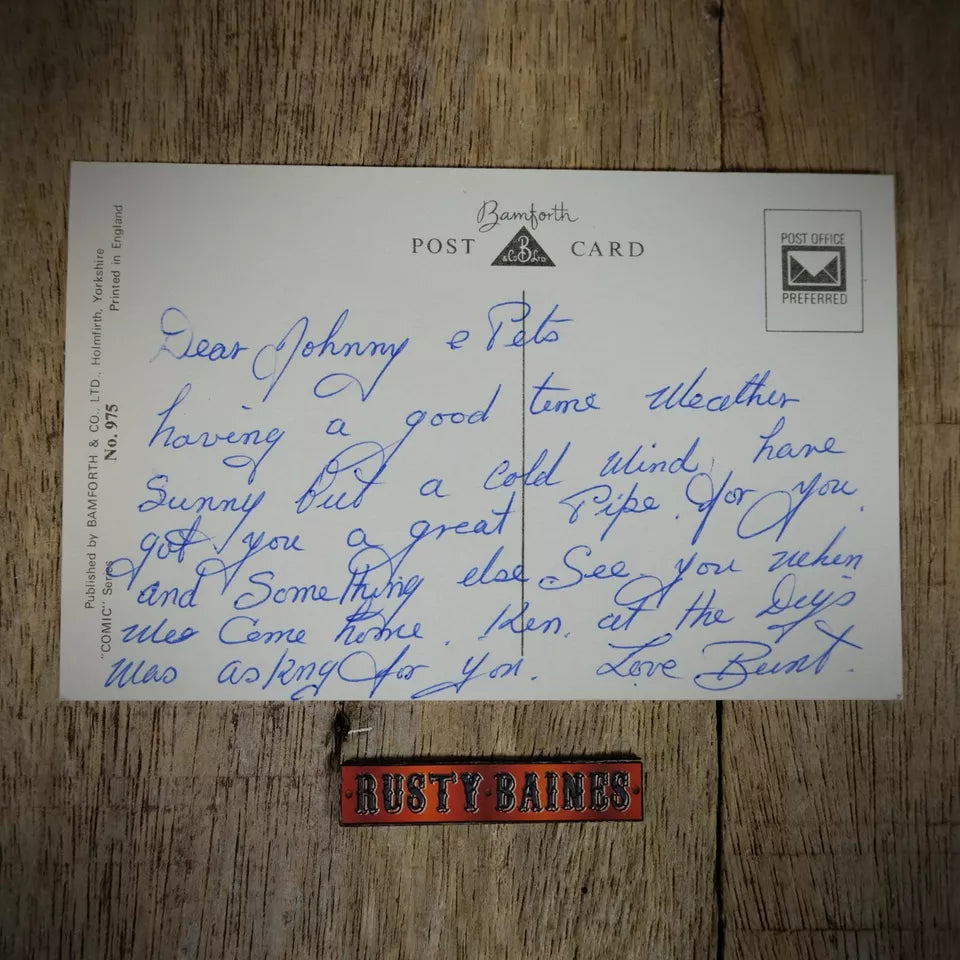 Bamforth
POST CARD
B
& Co LTD
POST OFFICE
PREFERRED
Published by BAMFORTH & CO., LTD., Holmfirth, Yorkshire
Printed in England
"COMIC" Series No. 975
Dear Johnny e Pets
having a good time Weather
Sunny but a cold Wind, have
got you a great Pipe for you.
and Something else See you when
Wee Come home. Ken. at the Deys
Was asking for you. Love Bunt.
RUSTY BAINES